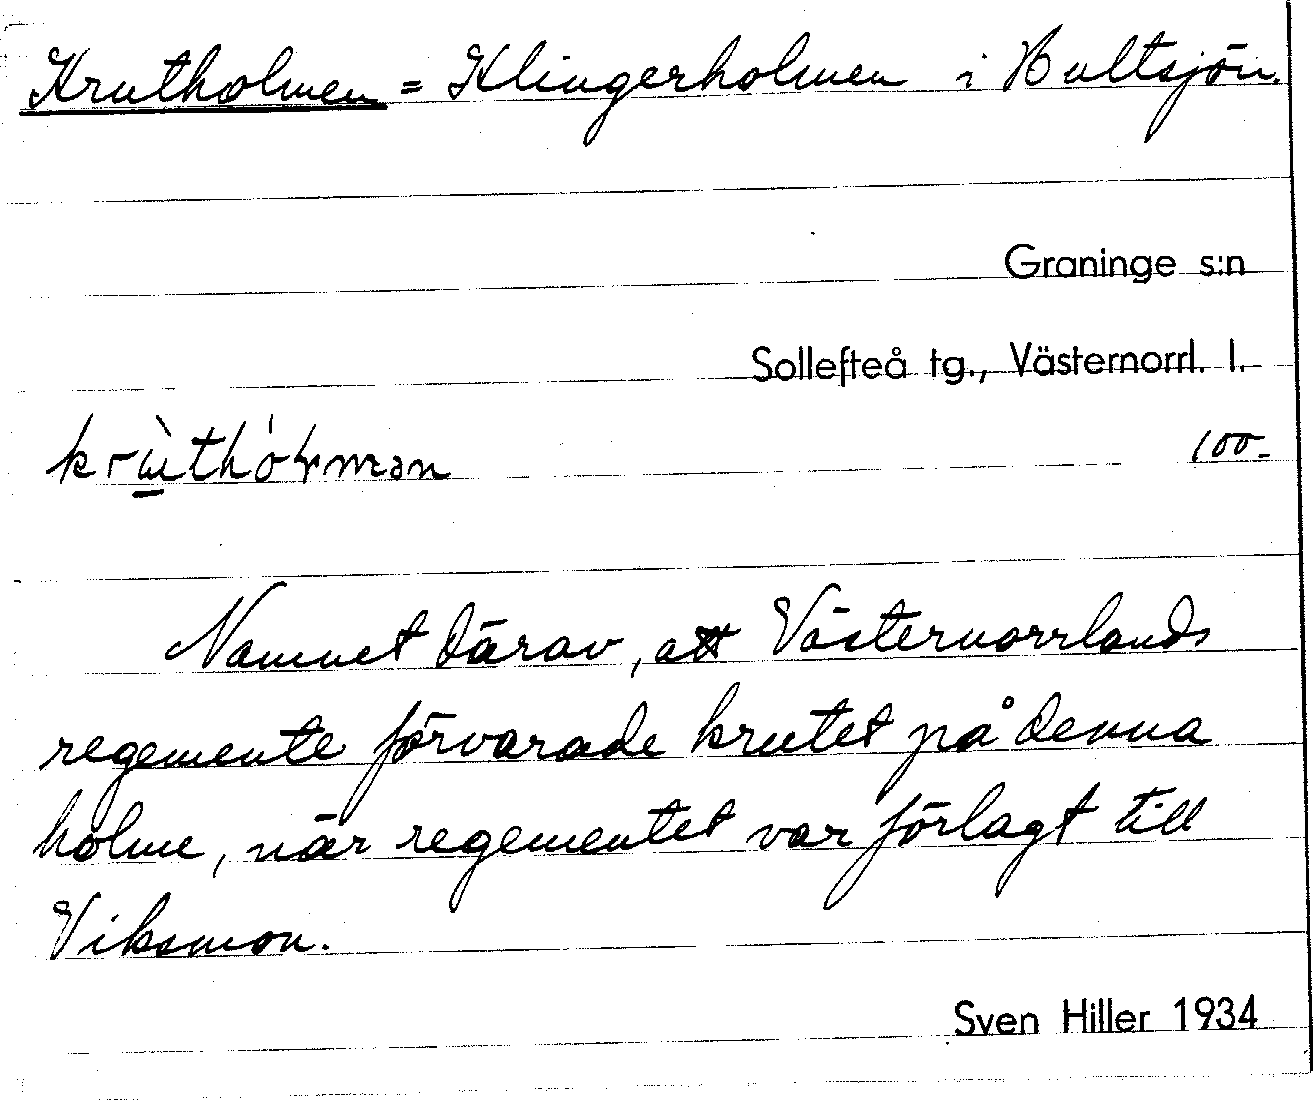 Krutholmen = Klingerholmen i Bultsjön.
Graninge s:n
Sollefteå tg., Västernorrl. l.
100-
Namnet därav, att Västernorrlands
regemente förvarade krutet på denna
holme, när regementet var förlagt till
Viksmon.
Sven Hiller 1934